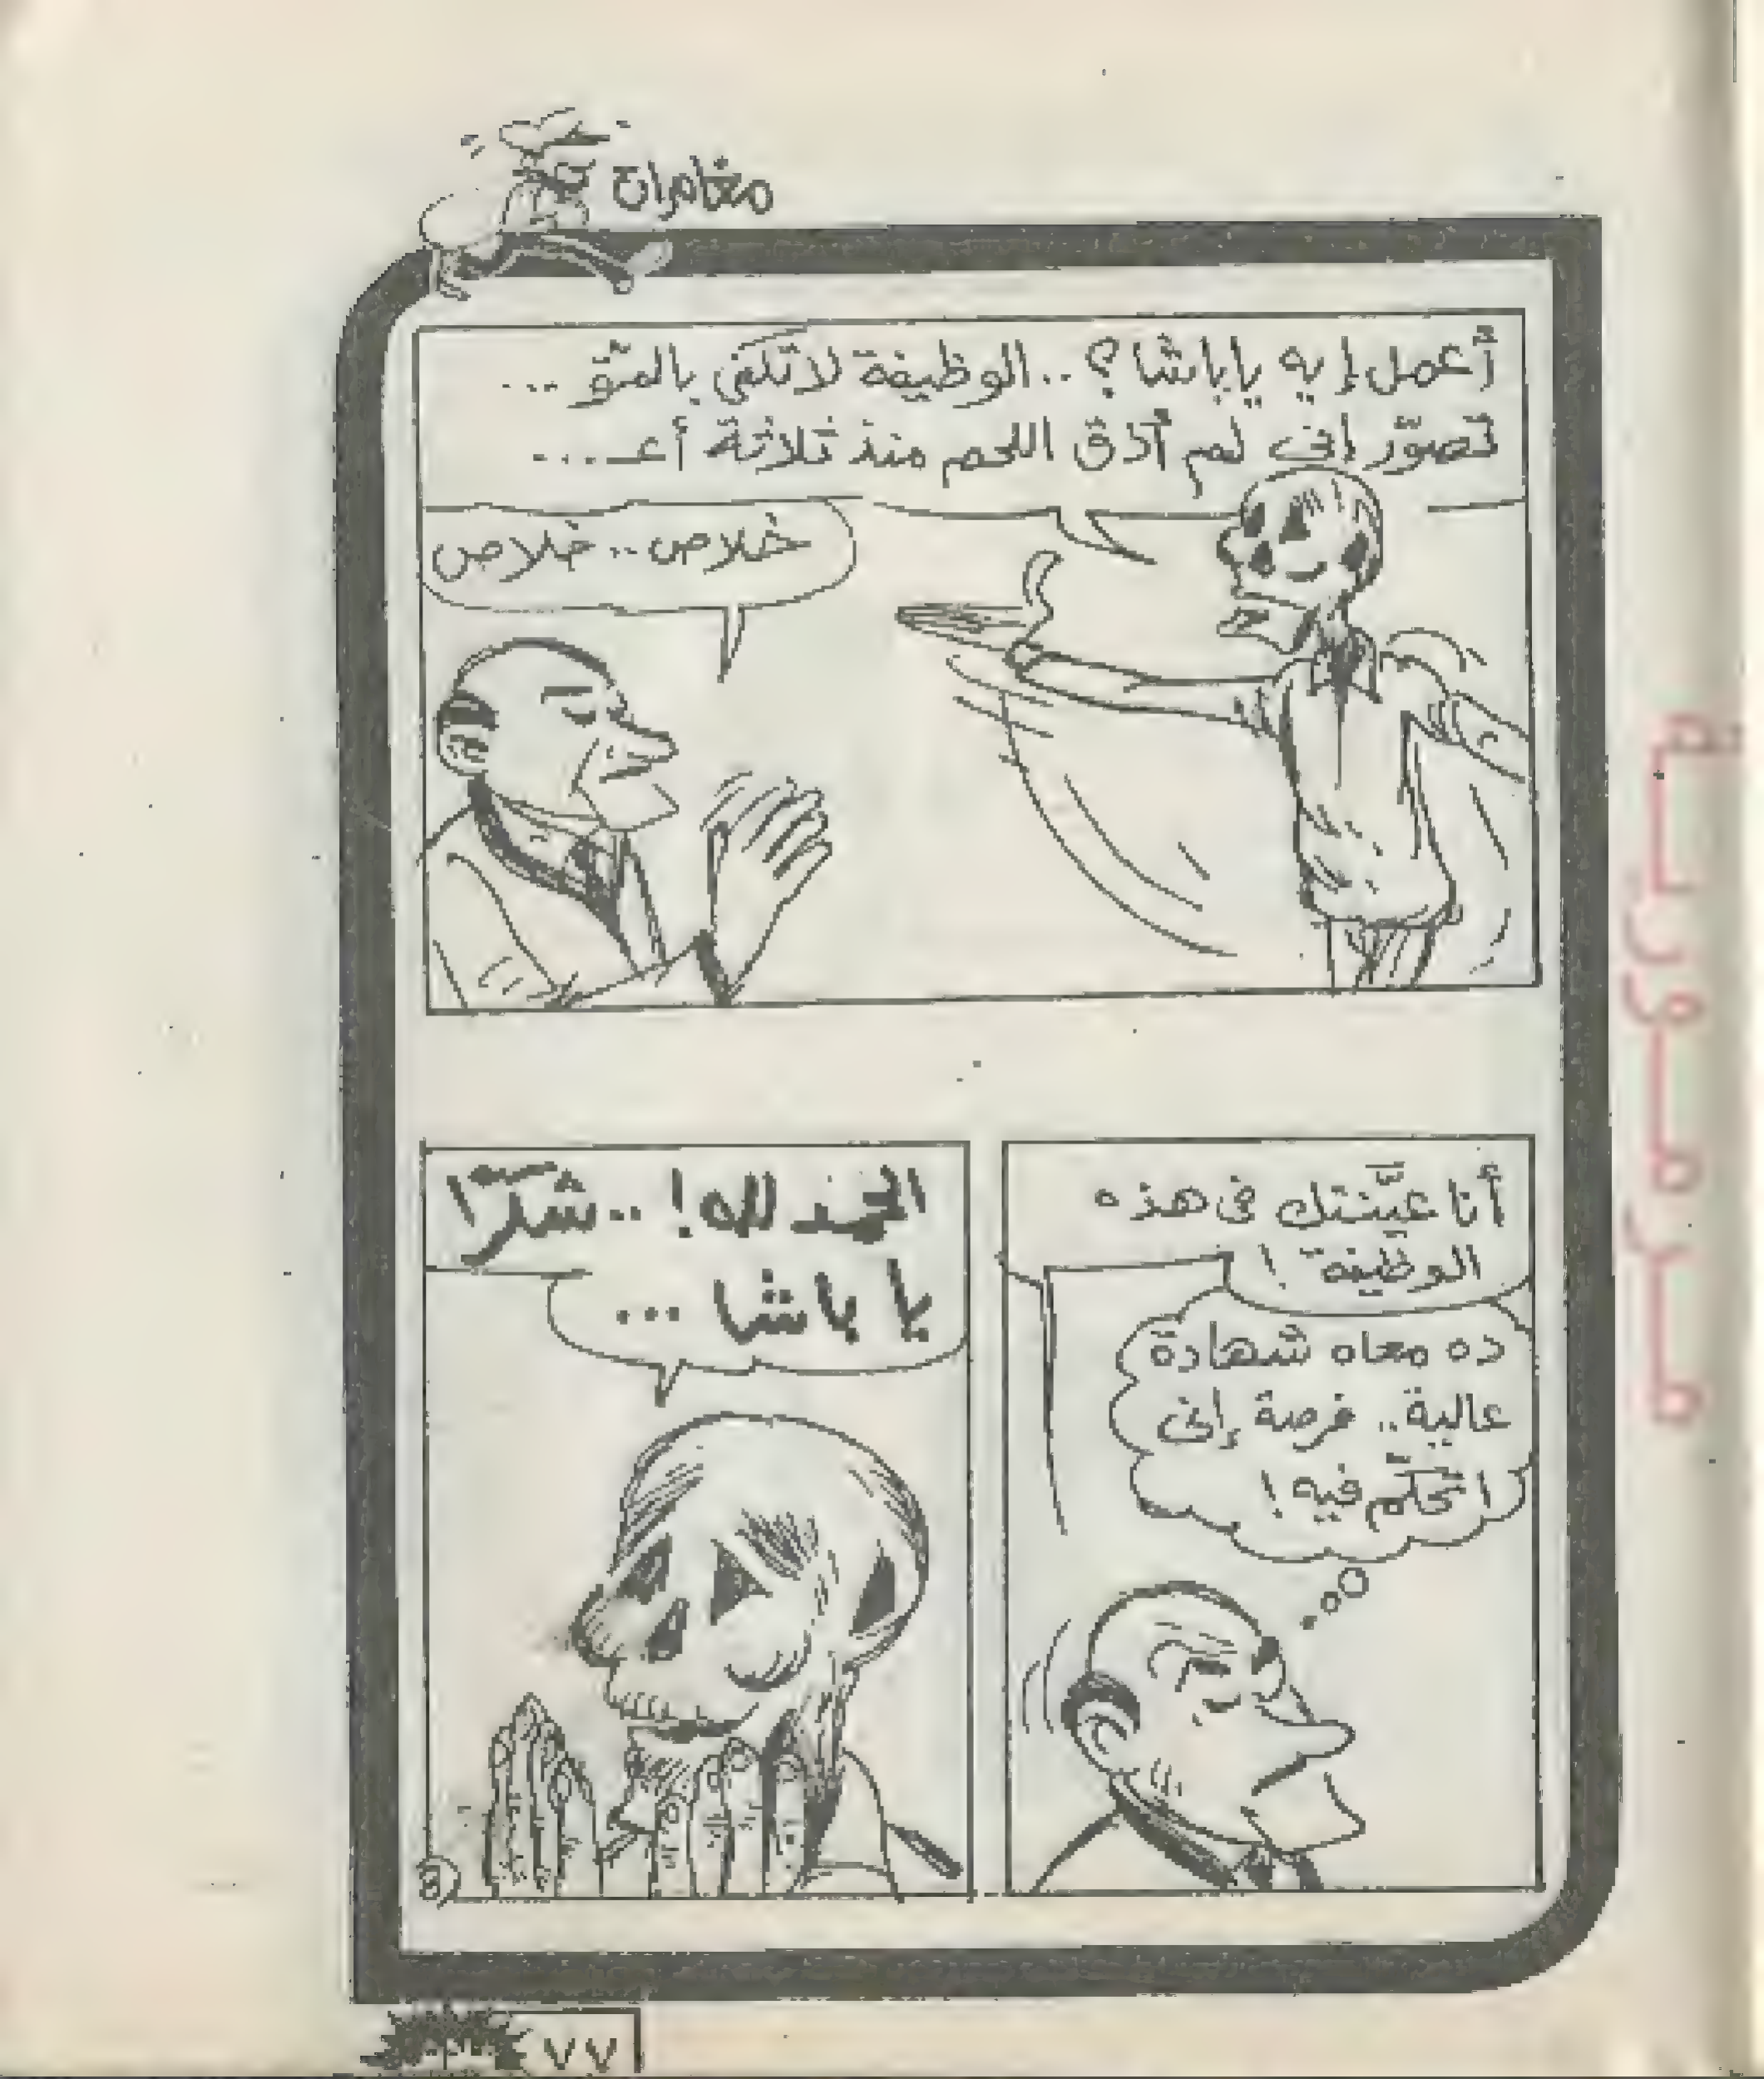 مغامرات
أعمل إيه ياباشا؟ ..الوظيفة لاتكفى بالمتوّ ...
تصوّر إنى لم أذق اللحم منذ ثلاثة أعـ....
خلاص .. خلاص
أنا عيّنتك فى هذه
الوظيفة !
ده معاه شهادة
عالية.. فرصة إنى
اتحكّم فيه !
الحمد لله! .. شكرًا
يا باشا ...
8
٧٧